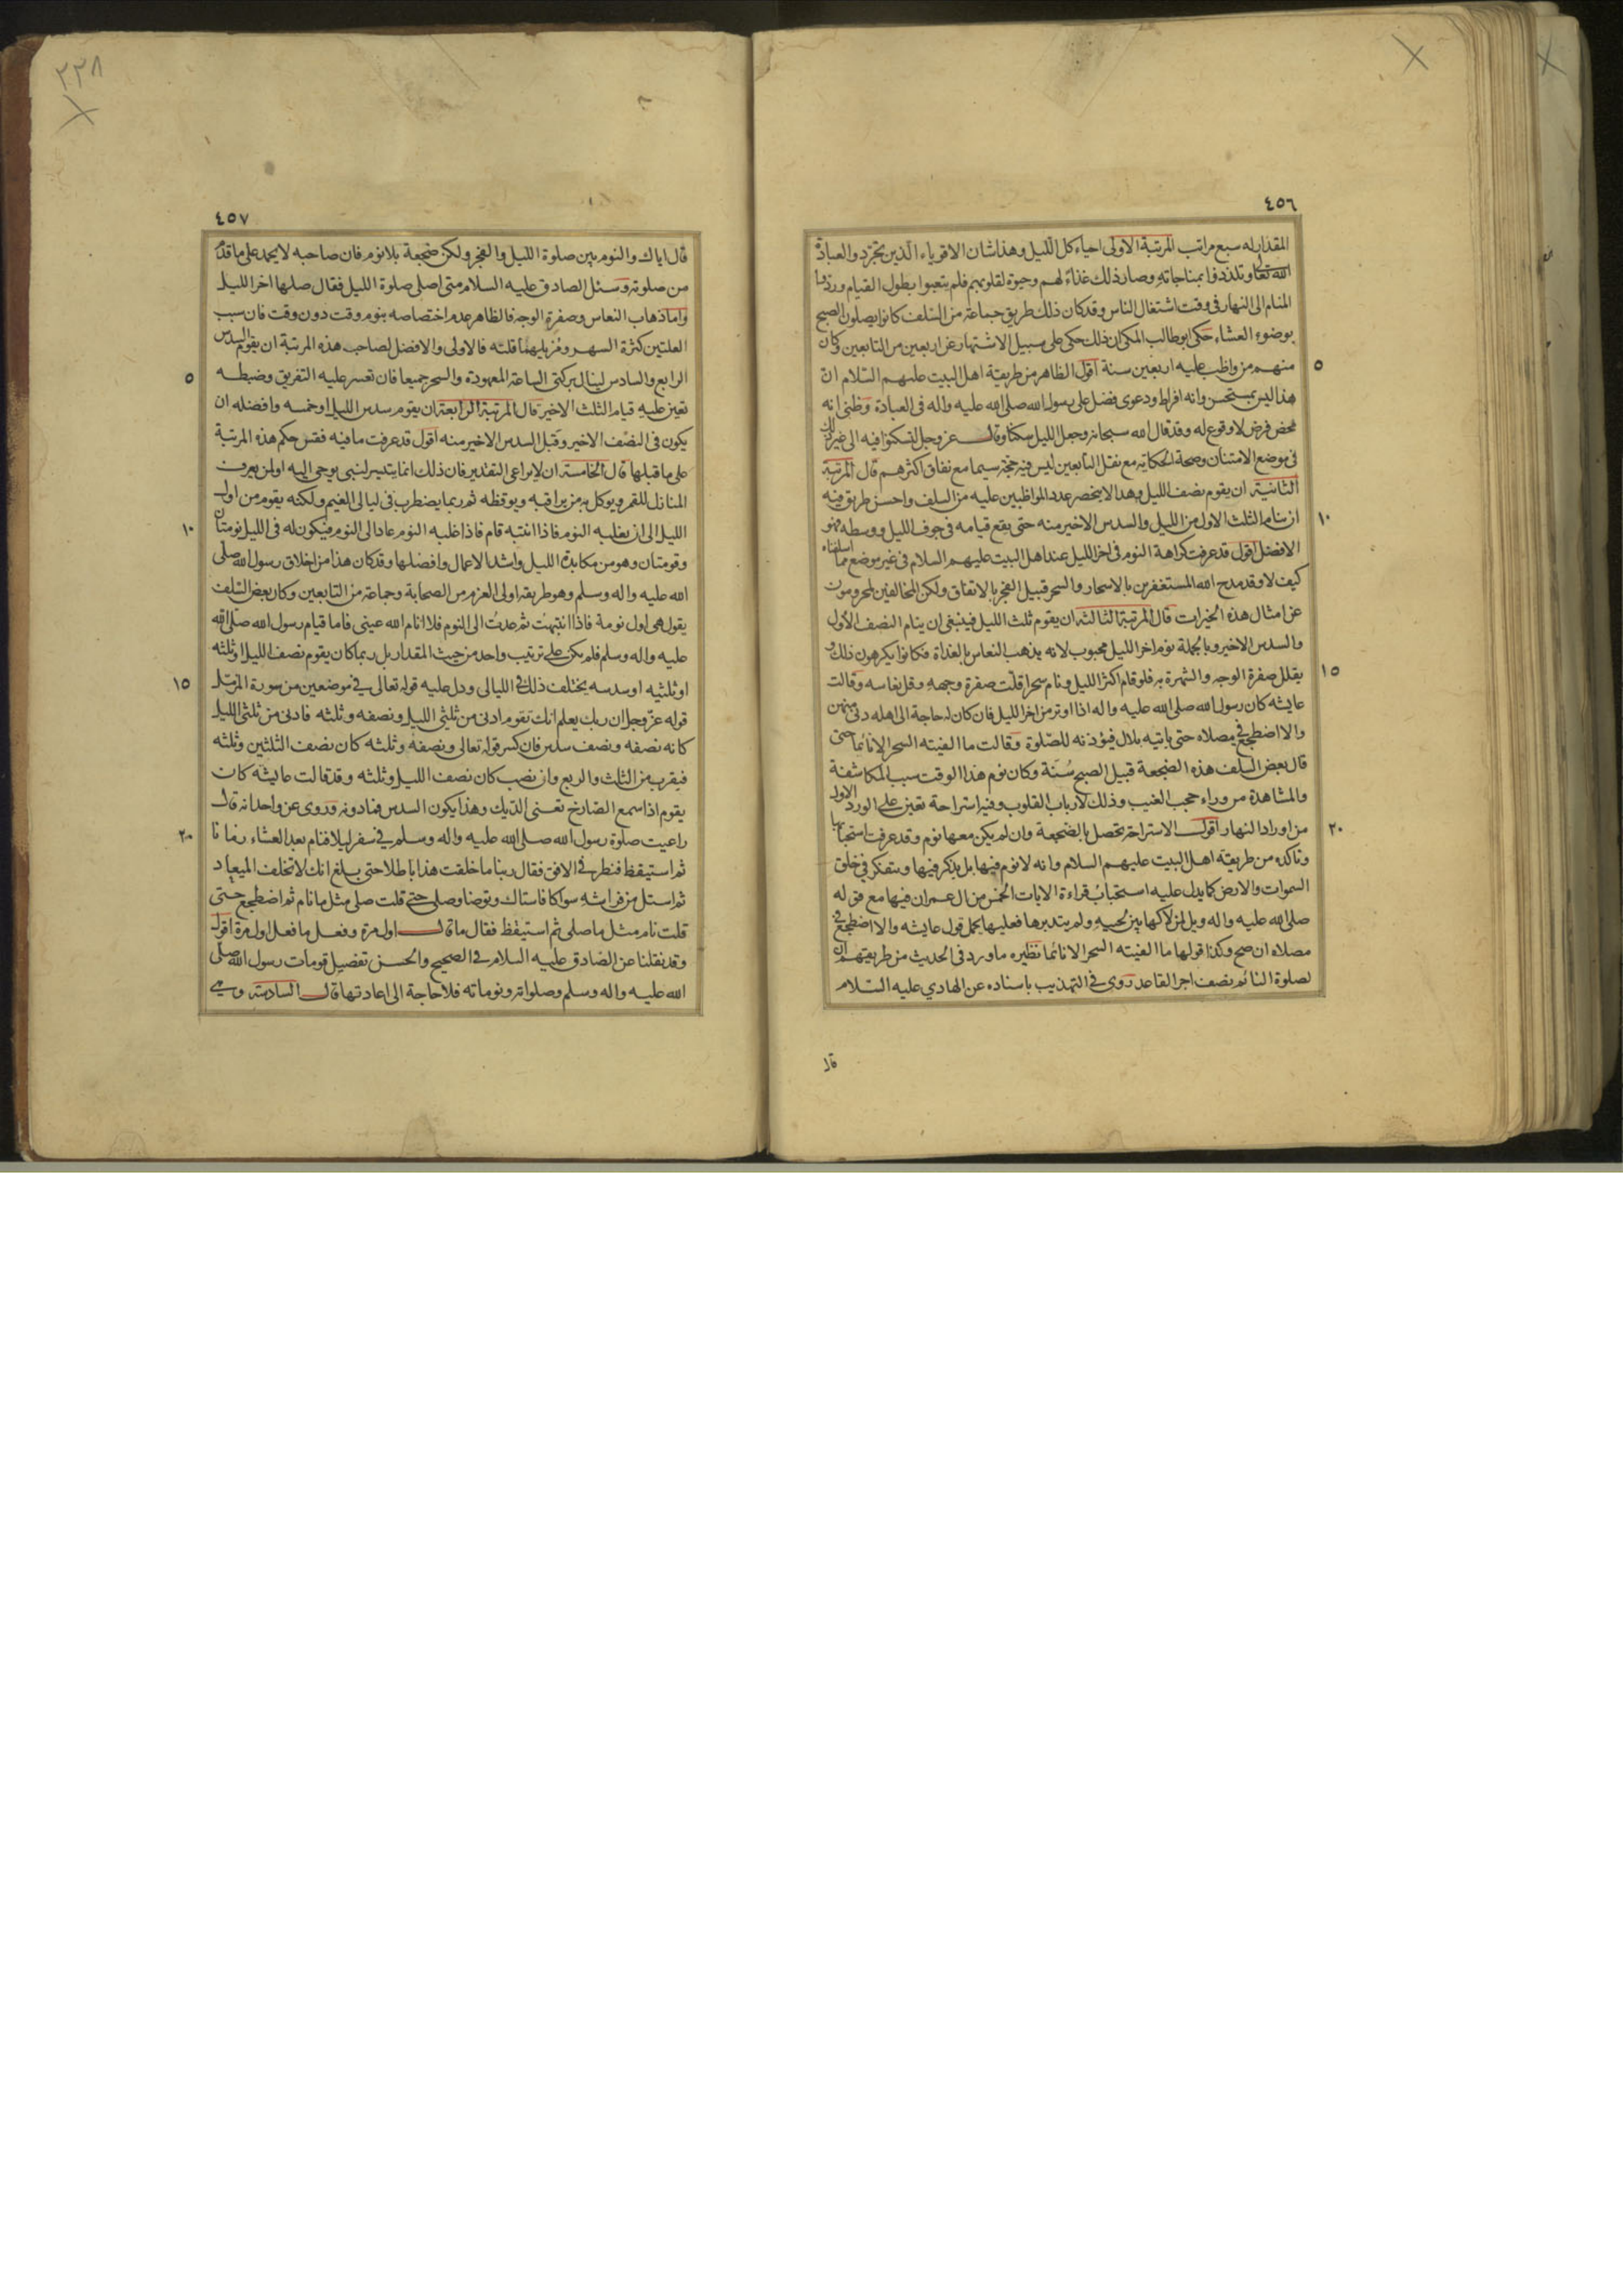 ٤٥٦
المقدار له سبع مراتب المرتبة الاولى احياء كل الليل وهذا شان الاقوياء الذين تجردوا لعبادة
الله تعالى وتلذذوا بمناجاته وصار ذلك غذاء لهم وحيوة لقلوبهم فلم يتعبوا بطول القيام وردوا
المنام الى النهار فى وقت اشتغال الناس وقد كان ذلك طريق جماعة من السلف كانوا يصلون الصبح
بوضوء العشاء حكى ابو طالب المكى ان ذلك حكى على سبيل الاشتهار عن اربعين من التابعين وكان
٥
منهم من واظب عليه اربعين سنة اقول الظاهر من طريقة اهل البيت عليهم السلام ان
هذا ليس بمستحسن وانه افراط ودعوى فضل على رسول الله صلى الله عليه واله فى العبادة وظنى انه
محض فرض لا وقوع له وقد قال الله سبحانه وجعل الليل سكنا وقال عز وجل لتسكنوا فيه الى غير ذلك
فى موضع الامتنان وصحة الحكاية مع نقل التابعين ليس فيه حجة سيما مع نفاق اكثرهم قال المرتبة
الثانية ان يقوم نصف الليل وهذا لا ينحصر عدد المواظبين عليه من السلف واحسن طريق فيه
١٠
ان ينام الثلث الاول من الليل والسدس الاخير منه حتى يقع قيامه فى جوف الليل ووسطه فهو
الافضل اقول قد عرفت كراهة النوم فى اخر الليل عند اهل البيت عليهم السلام فى غير موضع مما اسلفناه
كيف لا وقد مدح الله المستغفرين بالاسحار والسحر قبيل الفجر بالاتفاق ولكن المخالفين لمحرومون
عن امثال هذه الخيرات قال المرتبة الثالثة ان يقوم ثلث الليل فينبغى ان ينام النصف الاول
والسدس الاخير وبالجملة نوم اخر الليل محبوب لانه يذهب النعاس بالغداة فكانوا يكرهون ذلك و
١٥
يقلل صفرة الوجه والشهرة به فلو قام اكثر الليل ونام سحرا قلت صفرة وجهه وقل نعاسه وقالت
عايشه كان رسول الله صلى الله عليه واله اذا اوتر من اخر الليل فان كان له حاجة الى اهله دنى منهن
والا اضطجع فى مصلاه حتى ياتيه بلال فيؤذنه للصلوة وقالت ما الفيته السحر الا نائما حتى
قال بعض السلف هذه الضجعة قبيل الصبح سنة وكان نوم هذا الوقت سببا لمكاشفة
والمشاهدة من وراء حجب الغيب وذلك لارباب القلوب وفيه استراحة تعين على الورد الاول
٢٠
من اوراد النهار اقول الاستراحة تحصل بالضجعة وان لم يكن معها نوم وقد عرفت استحبابها
وتاكده من طريقة اهل البيت عليهم السلام وانه لا نوم فيها بل يذكر فيها ويتفكر فى خلق
السموات والارض كما يدل عليه استحباب قراءة الايات الخمس من ال عمران فيها مع قوله
صلى الله عليه واله ويل لمن لاكها بين لحييه ولم يتدبرها فعليها يحمل قول عايشه والا اضطجع فى
مصلاه ان صح وكذا قولها ما الفيته السحر الا نائما نظيره ما ورد فى الحديث من طريقتهم ان
لصلوة النائم نصف اجر القاعد روى فى التهذيب باسناده عن الهادي عليه السلام
قال
٢٢٨
٤٥٧
قال اياك والنوم بين صلوة الليل والفجر ولكن ضجعة بلا نوم فان صاحبه لا يحمد على ما قدم
من صلوته وسئل الصادق عليه السلام متى اصلى صلوة الليل فقال صلها اخر الليل
واما ذهاب النعاس وصفرة الوجه فالظاهر عدم اختصاصه بنوم وقت دون وقت فان سبب
العلتين كثرة السهر ومزيلهما قلته فالاولى والافضل لصاحب هذه المرتبة ان يقوم السدس
٥
الرابع والسادس لينال بركتى الساعة المعهودة والسحر جميعا فان تعسر عليه التفريق وضبطه
تعين عليه قيام الثلث الاخير قال المرتبة الرابعة ان يقوم سدس الليل او خمسه وافضله ان
يكون فى النصف الاخير وقبل السدس الاخير منه اقول قد عرفت ما فيه فقس حكم هذه المرتبة
على ما قبلها قال الخامسة ان لا يراعى التقدير فان ذلك انما يتيسر لنبى يوحى اليه او لمن يعرف
المنازل للقمر ويوكل به من يراقبه ويوقظه ثم ربما يضطرب فى ليالى الغيم ولكنه يقوم من اول
١٠
الليل الى ان يغلبه النوم فاذا انتبه قام فاذا غلبه النوم عاد الى النوم فيكون له فى الليل نومتان
وقومتان وهو من مكابدة الليل واشد الاعمال وافضلها وقد كان هذا من اخلاق رسول الله صلى
الله عليه واله وسلم وهو طريقة اولى العزم من الصحابة وجماعة من التابعين وكان بعض السلف
يقول هى اول نومة فاذا انتبهت ثم عدت الى النوم فلا انام الله عينى فاما قيام رسول الله صلى الله
عليه واله وسلم فلم يكن على ترتيب واحد من حيث المقدار بل ربما كان يقوم نصف الليل او ثلثه
١٥
او ثلثيه او سدسه يختلف ذلك فى الليالى ودل عليه قوله تعالى فى موضعين من سورة المزمل
قوله عز وجل ان ربك يعلم انك تقوم ادنى من ثلثى الليل ونصفه وثلثه فادنى من ثلثى الليل
كانه نصفه ونصف سدس فان كسر قوله تعالى ونصفه وثلثه كان نصف الثلثين وثلثه
فيقرب من الثلث والربع وان نصب كان نصف الليل وثلثه وقد قالت عايشه كان
يقوم اذا سمع الصارخ تعنى الديك وهذا يكون السدس فما دونه وروى عن واحد انه قال
٢٠
راعيت صلوة رسول الله صلى الله عليه واله وسلم فى سفر ليلا فنام بعد العشاء زمانا
ثم استيقظ فنظر فى الافق فقال ربنا ما خلقت هذا باطلا حتى بلغ انك لا تخلف الميعاد
ثم استل من فراشه سواكا فاستاك وتوضا وصلى حتى قلت صلى مثل ما نام ثم اضطجع حتى
قلت نام مثل ما صلى ثم استيقظ فقال ما قال اول مرة وفعل ما فعل اول مرة اقول
وقد نقلنا عن الصادق عليه السلام فى الصحيح والحسن تفصيل قومات رسول الله صلى
الله عليه واله وسلم وصلواته ونوماته فلا حاجة الى اعادتها قال السادسة وهي